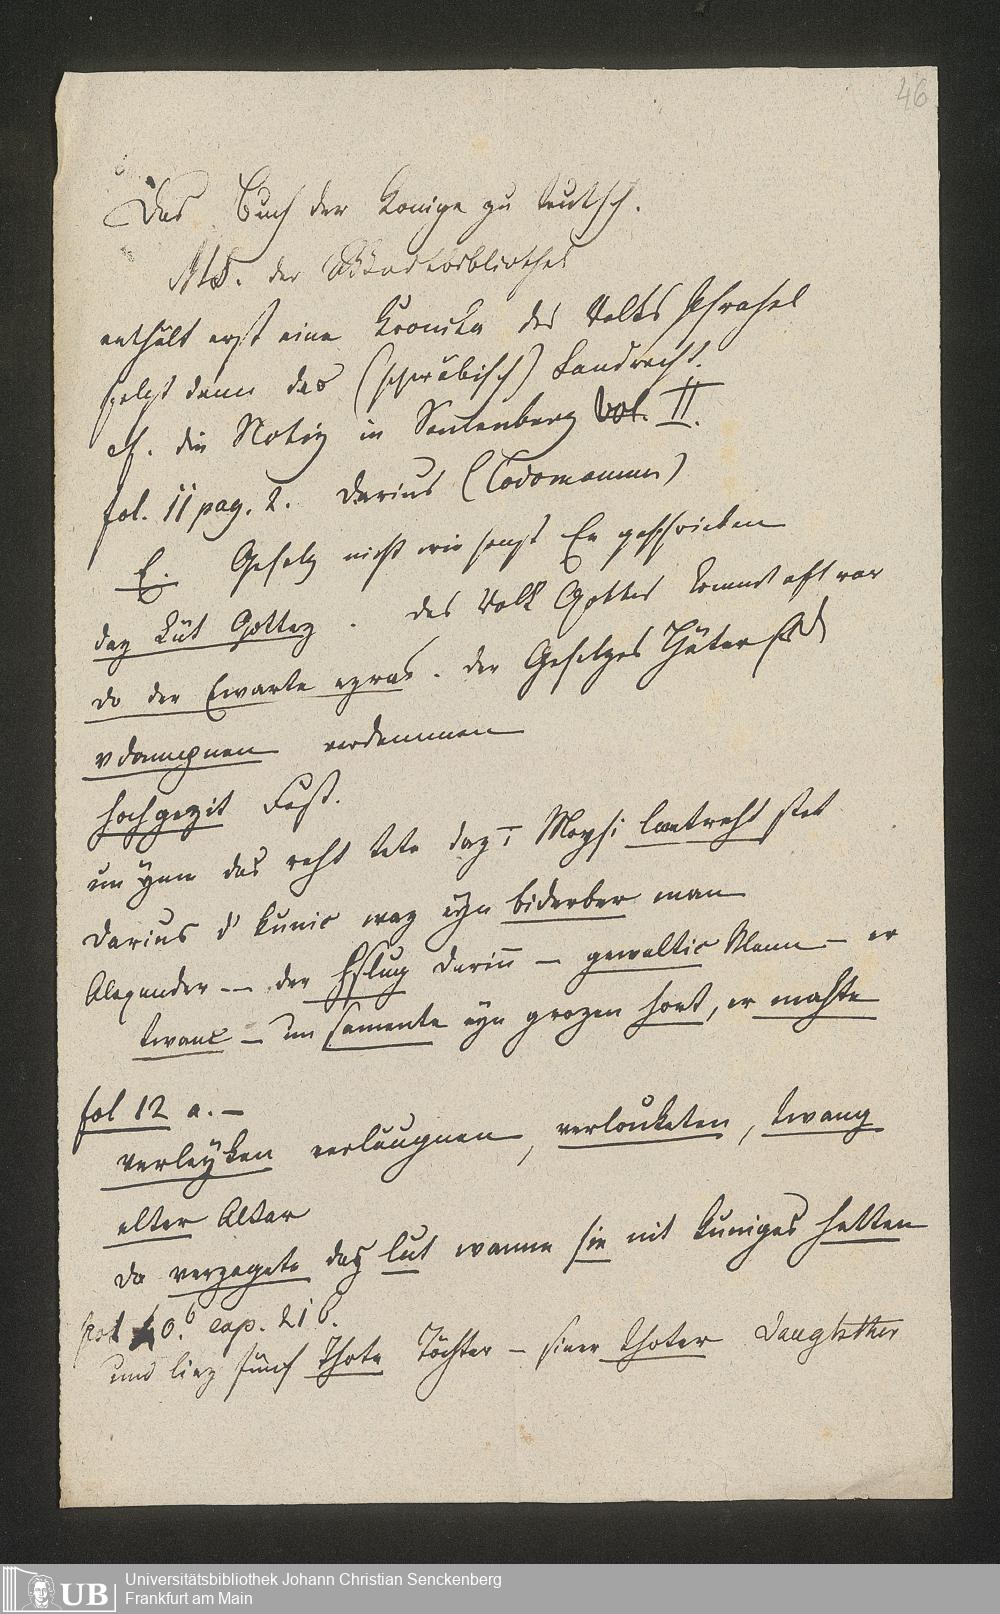 46
Das Buch der Konige zu teutsch.
Ms. der Stadtbibliothek
enthält erst eine Kronika des Volks Jsrahel
folgt dann das (schwäbisch) Landrecht.
cf. die Notiz in Senkenberg Vol. II.
fol. 11 pag. 2. Darius (Codomannus)
E. Gesetz nicht wie sonst Ee geschrieben
daz lüt Gottez . das Volk Gottes kommt oft vor
do der Ewarte ezras. der Gesetzes Hüter
vdampnen verdammen
hochgezit Fest.
un ym das reht tete daz Moysi lantreht stet
Darius d' kunic waz eyn biderber man
Alexander — der Hslug Darin — gewaltic Mann — er
twanc — un samente eyn grozen hort, er mahte
fol 12 a. —
verleyken verläugnen, verlouketen, twang
alter Altar
do verzagete daz lut wanne sie nit kuniges hetten
fol 40.b cap. 216.
und liez fünf Thote Töchter — siner thoter Daughther
Universitätsbibliothek Johann Christian Senckenberg
Frankfurt am Main
UB